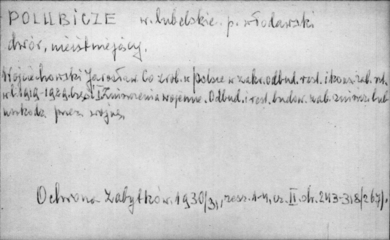 POLUBICZE w. lubelskie. p. włodawski
dwór, nieistniejący.
Wojciechowski Jarosław Co zrob. w Polsce w zakr. odbud. rest. i konserw. zab.
w l. 1919-1929. część I Zniszczenia wojenne. Odbud. i rest. budow. zab. zniszcz. lub
uszkodz. przez wojnę.
Ochrona Zabytków. 1930/31, zesz. 1-4, cz. II, str. 243-318 /267/.